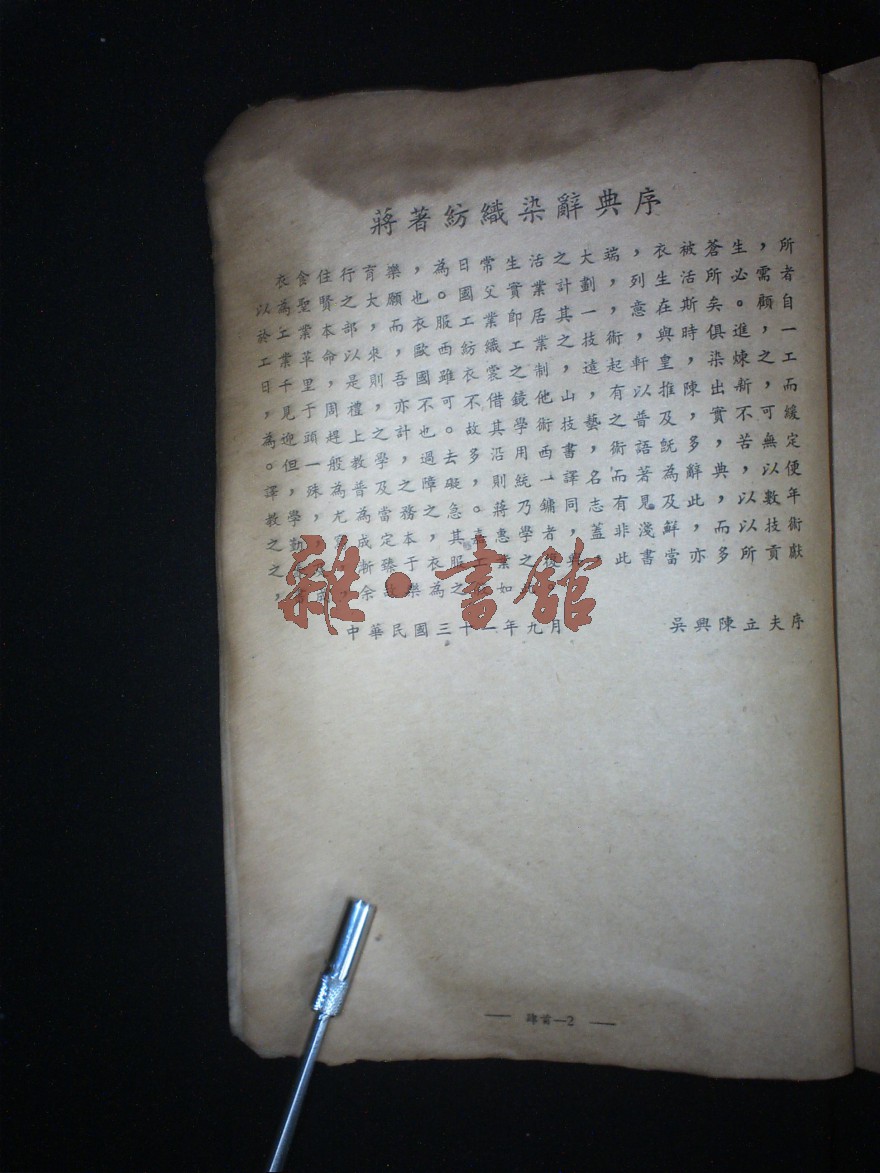 蔣著紡織染辭典序
衣食住行育樂，為日常生活之大端，衣被蒼生，所
以為聖賢之大願也。國父實業計劃，列生活所必需者
於工業本部，而衣服工業即居其一，意在斯矣。顧自
工業革命以來，歐西紡織工業之技術，與時俱進，一
日千里，是則吾國雖衣裳之制，遠起軒皇，染煉之工
，見于周禮，亦不可不借鏡他山，有以推陳出新，而
為迎頭趕上之計也。故其學術技藝之普及，實不可緩
。但一般教學，過去多沿用西書，術語旣多，苦無定
譯，殊為普及之障礙，則統一譯名而著為辭典，以便
教學，尤為當務之急。蔣乃鏞同志有見及此，以數年
之勤，成定本，其嘉惠學者，蓋非淺鮮，而以技術
之，漸臻于衣服工業之，此書當亦多所貢獻
，余樂為之如
中華民國三十一年九月 吳興陳立夫序
雜·書館
— 辭首—2 —